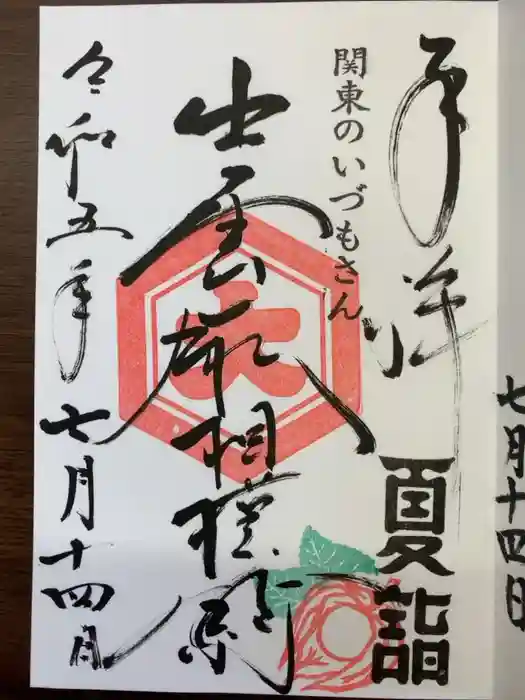 七月十四日
奉拝
夏詣
関東のいづもさん
出雲大社相模分祠
大
令和五年七月十四日